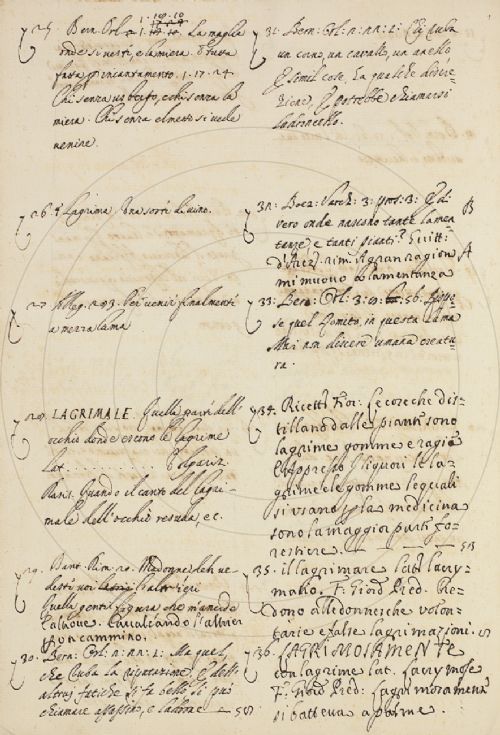 25. Bern. Orl. 2. 1. La maglia
onde si vestì, e la miera. Tutta
fatta per incantamento. 1. 17. 24.
Chi senza usbergo, e chi senza la
miera. Chi senza elmetto si vede
venire.
26. Lagrima. Una sorte di vino.
27. Alleg. 293. Per venir finalmente
a mezza lama
28. LAGRIMALE. Quella parte dell'
occhio donde escono le lagrime
Lat. . . . . . . . . . .
Quando il canto del lagri-
male dell'occhio resuda, ec.
29. Dant. Rim. 29. Madonne deh ve-
deste voi l'altrieri
Quella gentil figura che m'ancide
Cavalcando l'altrier
per un cammino.
30. Bern: Orl: n: nn: 1: Ma quel
che ruba la riputazione, e dell'
altrui fatiche si fa bello, si può
chiamare assassino, e ladrone 503
31. Bern: Orl: n: nn: 2: Chi ruba
un corno, un cavallo, un anello
E simil cose, ha qualche discre-
zione, E potrebbe chiamarsi
ladroncello.
32. Boez: Varch: 3: Di
vero onde nascono tante lamen- B
tanze, e tanti pianti? Guitt:
d'Arez: rim. A gran ragion A
mi muovo a lamentanza
33: Bern: Orl: 3: 56. Dispo-
se quel Domito, in questa lama
Mai non discere umana creatu-
ra.
34. Ricett: Fior: Le cose che dis-
tillano dalle piante sono
lagrime gomme e ragie
E appresso I liquori le la-
grime e le gomme le quali
si usano per la medicina
sono la maggior parte fo-
restiere. 503
35. il lagrimare latt: lacry-
matio. F. Giord. Pred. Re-
dono alle donne che volon-
tarie e false lagrimazioni.
36. LAGRIMOSAMENTE
con lagrime lat. lacrymose
F. Giord. Pred: lagrimosamente
si batteva a palme.